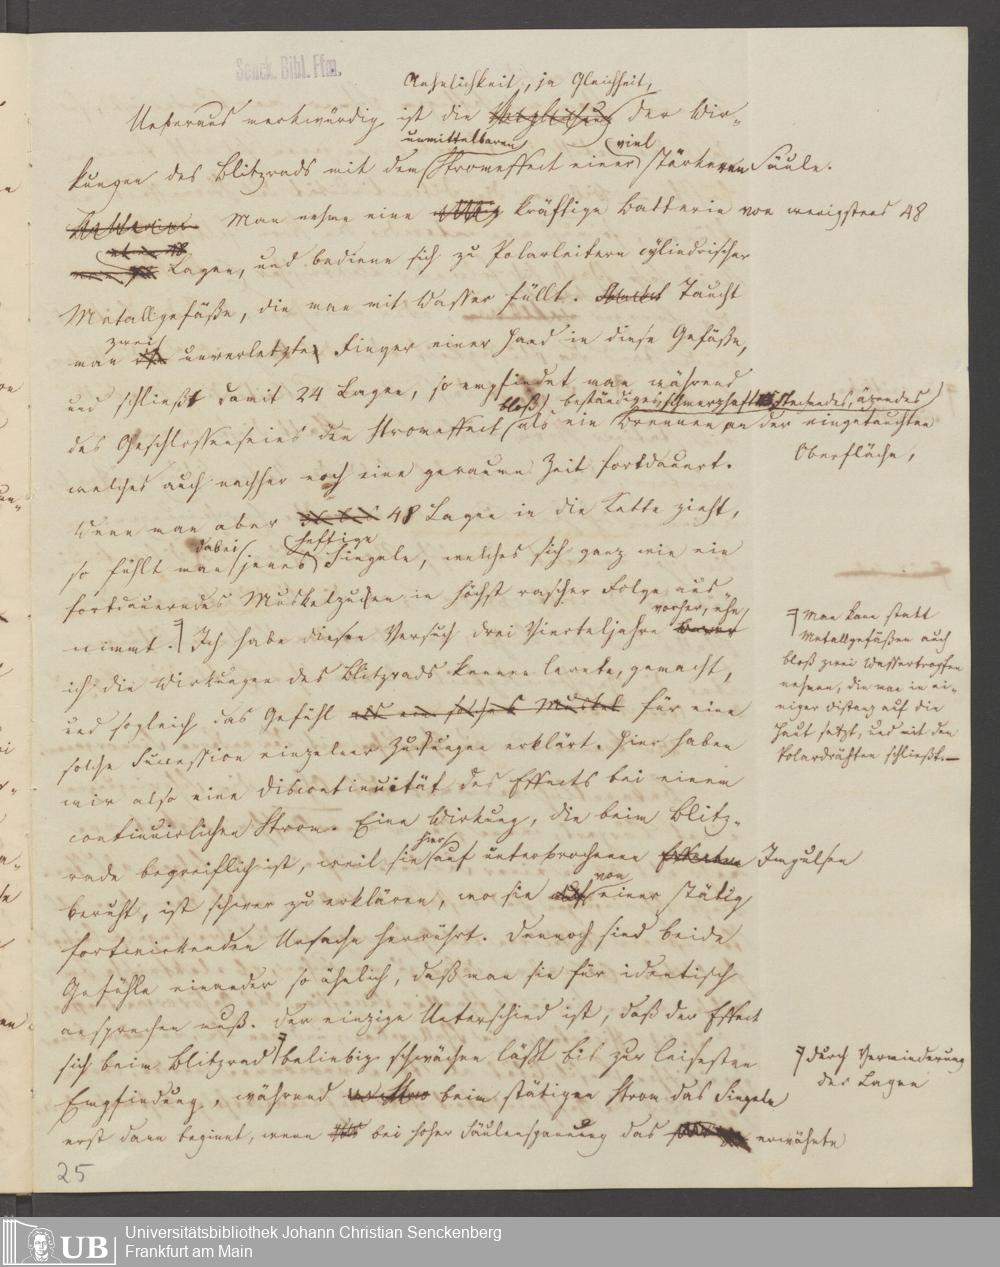 Senck. Bibl. Ffm.
Aehnlichkeit, ja Gleichheit,
Ueberaus merkwürdig ist die Vergleichung der Wir-
unmittelbaren viel
kungen des Blitzrads mit dem Stromeffect einer stärkeren Säule.
Man nehme eine kräftige Batterie von wenigstens 48
Lagen, und bediene sich zu Polarleitern cylindrischer
Metallgefäße, die man mit Wasser füllt. Taucht
zwei
man unverletzte Finger einer Hand in diese Gefäße,
und schließt damit 24 Lagen, so empfindet man während
bloß beständiges, schmerzhaftes, stechendes, äzendes
des Geschlossenseins den Stromeffect als ein Brennen an der eingetauchten
Oberfläche,
welches auch nachher noch eine geraume Zeit fortdauert.
Wenn man aber 48 Lagen in die Kette zieht,
dabei heftige
so fühlt man jenes Singeln, welches sich ganz wie ein
fortdauerndes Muskelzucken in höchst rascher Folge aus-
vorher, ehe
nimmt. Ich habe diesen Versuch drei Vierteljahre bevor
ich die Wirkungen des Blitzrads kennen lernte, gemacht,
und sogleich das Gefühl als ein solches für eine
solche Succession einzelner Zuckungen erklärt. Hier haben
wir also eine Discontinuität des Effects bei einem
continuirlichen Strom. Eine Wirkung, die beim Blitz-
hier
rade begreiflich ist, weil sie auf unterbrochenen Impulsen
von
beruht, ist schwer zu erklären, wo sie auf einer stätig
fortwirkenden Ursache herrührt. Dennoch sind beide
Gefühle einander so ähnlich, daß man sie für identisch
ansprechen muß. Der einzige Unterschied ist, daß der Effect
sich beim Blitzrad beliebig schwächen läßt bis zur leisesten
Empfindung, während beim stätigen Strom das Singeln
erst dann beginnt, wenn bei hoher Säulenspannung das erwähnte
Man kann statt
Metallgefäßen auch
bloß zwei Wassertropfen
nehmen, die man in ei-
niger Distanz auf die
Haut setzt, und mit den
Polardrähten schließt.—
durch Verminderung
der Lagen
25
UB
Universitätsbibliothek Johann Christian Senckenberg
Frankfurt am Main